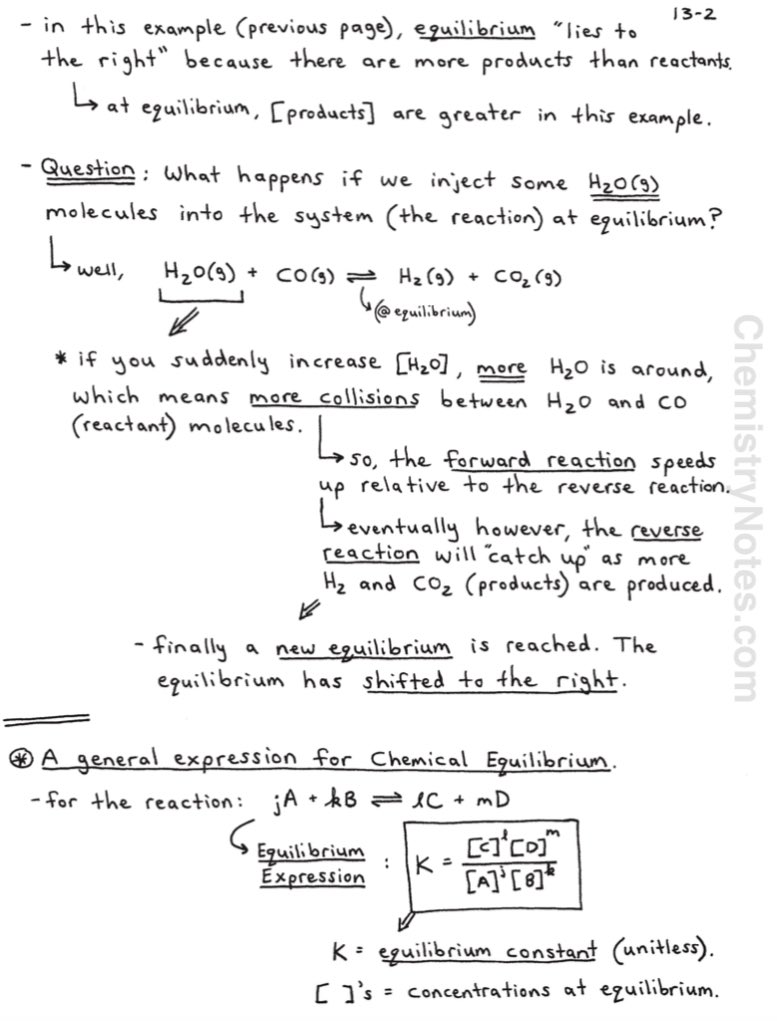 13-2
- in this example (previous page), equilibrium "lies to
the right" because there are more products than reactants.
↳ at equilibrium, [products] are greater in this example.
- Question: What happens if we inject some H₂O(g)
molecules into the system (the reaction) at equilibrium?
↳ well, H₂O(g) + CO(g) ⇌ H₂(g) + CO₂(g)
↳(@ equilibrium)
* if you suddenly increase [H₂O], more H₂O is around,
which means more collisions between H₂O and CO
(reactant) molecules.
↳ so, the forward reaction speeds
up relative to the reverse reaction.
↳ eventually however, the reverse
reaction will "catch up" as more
H₂ and CO₂ (products) are produced.
- finally a new equilibrium is reached. The
equilibrium has shifted to the right.
⊛ A general expression for Chemical Equilibrium.
- for the reaction: jA + kB ⇌ lC + mD
↳ Equilibrium
Expression : K = [C]ˡ[D]ᵐ
[A]ʲ[B]ᵏ
K = equilibrium constant (unitless).
[ ]'s = concentrations at equilibrium.
ChemistryNotes.com